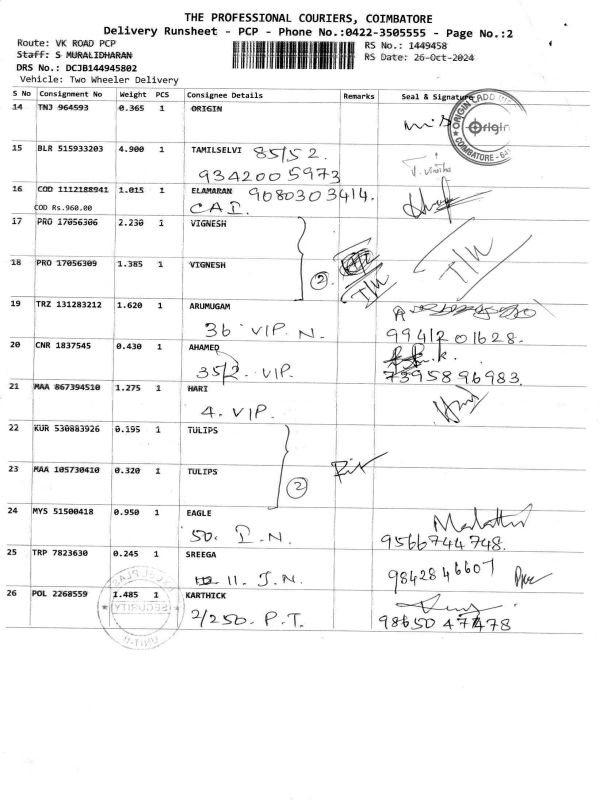 THE PROFESSIONAL COURIERS, COIMBATORE
Delivery Runsheet - PCP - Phone No.:0422-3505555 - Page No.:2
Route: VK ROAD PCP RS No.: 1449458
Staff: S MURALIDHARAN RS Date: 26-Oct-2024
DRS No.: DCJB144945802
Vehicle: Two Wheeler Delivery
S No Consignment No Weight PCS Consignee Details Remarks Seal & Signature
14 TNJ 964593 0.365 1 ORIGIN
Origin
COIMBATORE
15 BLR 515933203 4.900 1 TAMILSELVI 85/52.
9342005973
16 COD 1112188941 1.015 1 ELAMARAN 9080303414.
COD Rs.960.00 CAI.
17 PRO 17056306 2.230 1 VIGNESH
2
18 PRO 17056309 1.385 1 VIGNESH
19 TRZ 131283212 1.620 1 ARUMUGAM
36 VIP. N. 9941201628.
20 CNR 1837545 0.430 1 AHAMED
35/2. VIP. 7395896983.
21 MAA 867394510 1.275 1 HARI
4. VIP.
22 KUR 530883926 0.195 1 TULIPS
23 MAA 105730410 0.320 1 TULIPS
2
24 MYS 51500418 0.950 1 EAGLE
50. I.N. 9566744748.
25 TRP 7823630 0.245 1 SREEGA
11. J.N. 9842846607
26 POL 2268559 1.485 1 KARTHICK
2/250. P.T.
SECURITY
UNIT-II